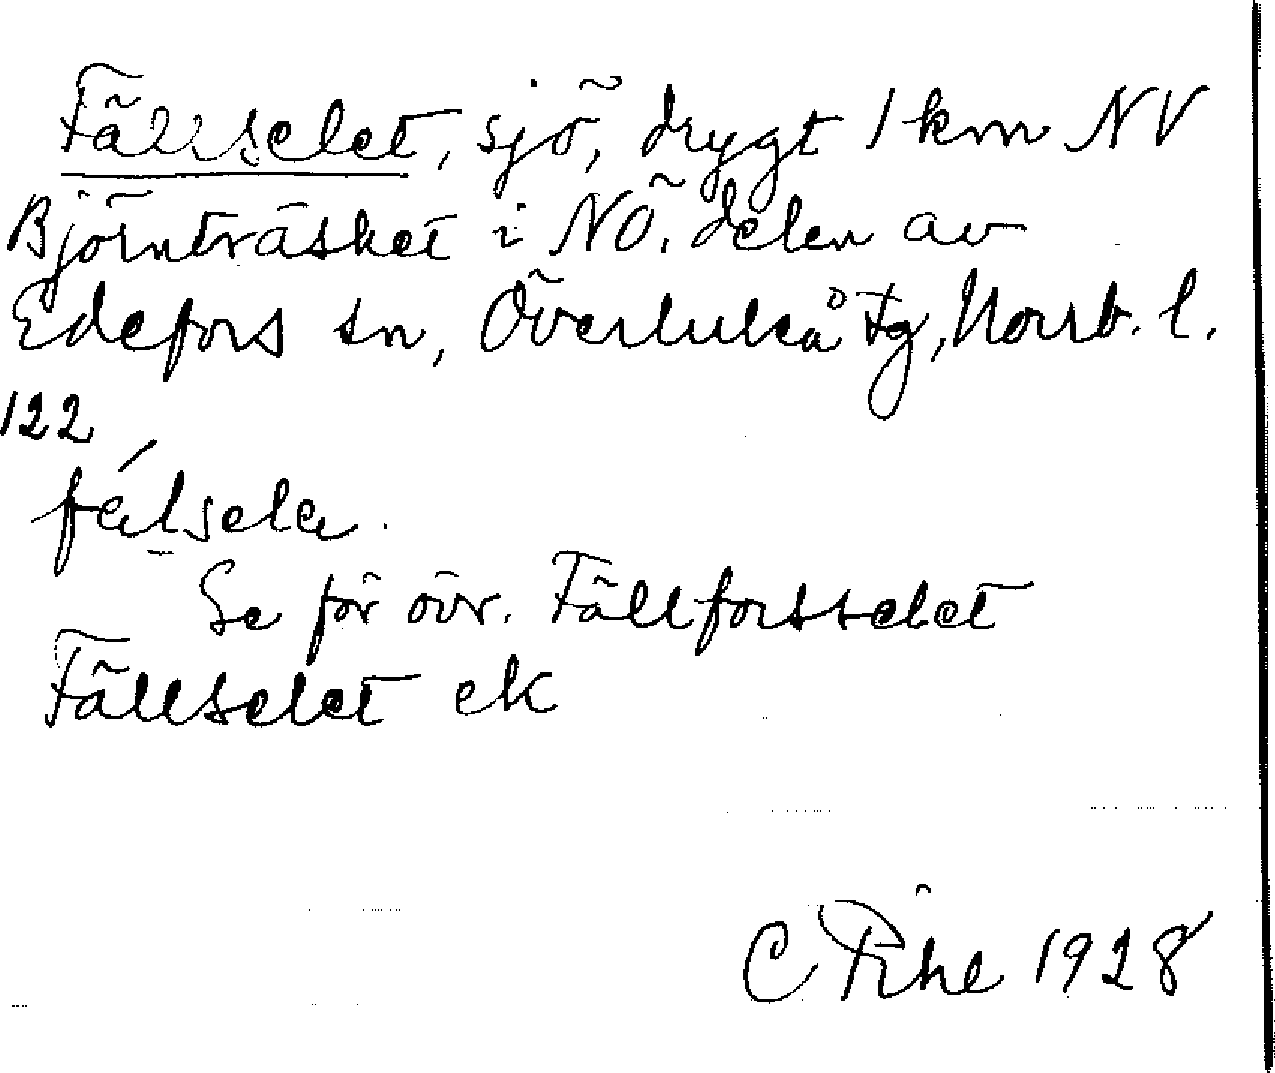 Fällselet, sjö, drygt 1 km NV
Björnträsket i NÖ. delen av
Edefors sn, Överluleå tg, Norrb. l.
122
félsela.
Se för övr. Fällforsselet
Fällselet ek
C 1928